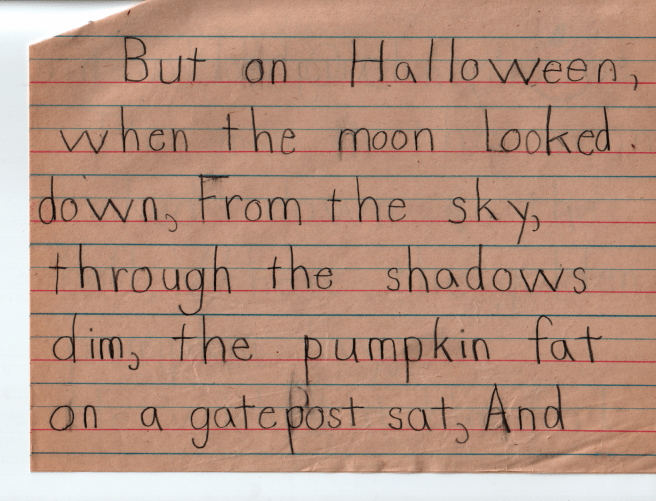 But on Halloween,
when the moon looked.
down, From the sky,
through the shadows
dim, the pumpkin fat
on a gatepost sat, And